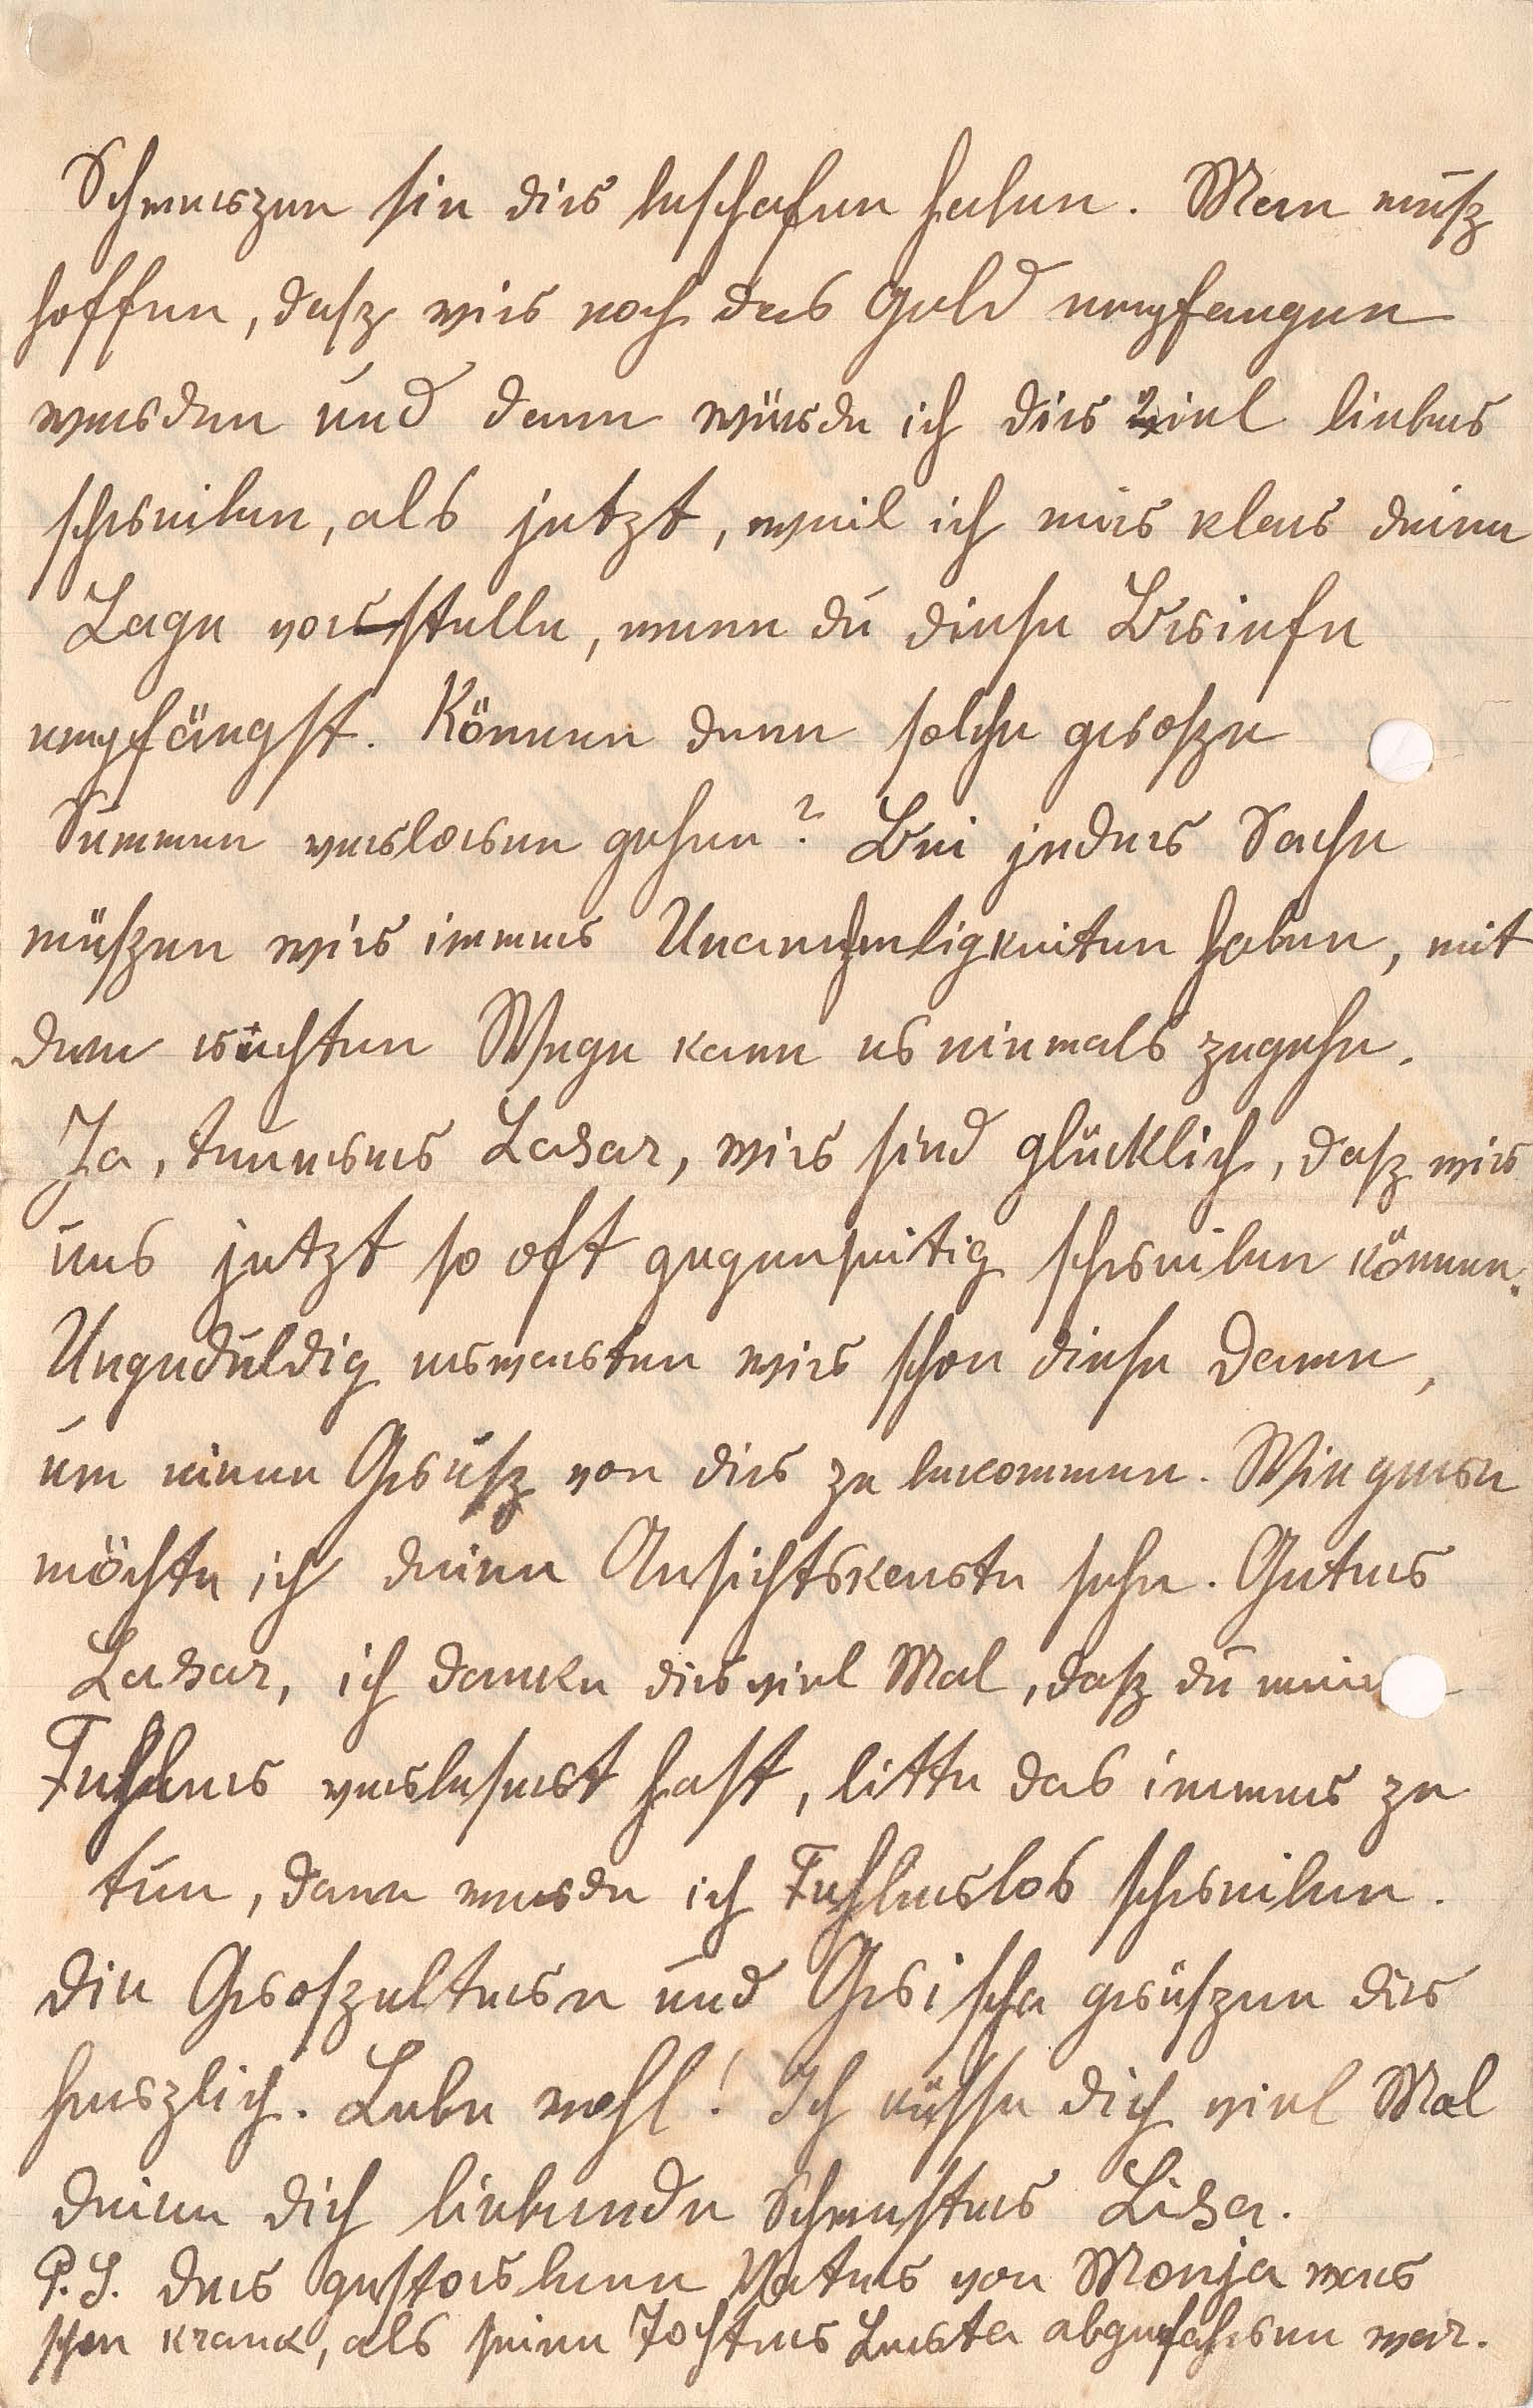 Schmerzen sie dir beschafen haben. Man muß
hoffen, daß wir noch das Geld empfangen
werden und dann würde ich dir viel lieber
schreiben, als jetzt, weil ich mir klar deine
Lage vorstelle, wenn du diese Briefe
empfängst. Können denn solche große
Summen verloren gehen? Bei jeder Sache
müßen wir immer Unanehmligkeiten haben, mit
dem rechten Wege kann es niemals zugehe.
Ja, teuerer Lasar, wir sind glücklich, daß wir
uns jetzt so oft gegenseitig schreiben können.
Ungeduldig erwarten wir schon diese Dame,
um einen Gruß von dir zu bekommen. Wie gerne
möchte ich deine Ansichtskarte sehe. Guter
Lasar, ich danke dir viel Mal, daß du meine
Fehler verbesert hast, bitte das immer zu
tun, dann werde ich Fehlerlos schreiben.
Die Großeltern und Grischa grüßen dir
herzlich. Lebe wohl! Ich küsse dich viel Mal
deine dich liebende Schwester Lisa.
P.S. Der gestorbene Vater von Monja war
schon krank, als seine Tochter Berta abgefahren war.